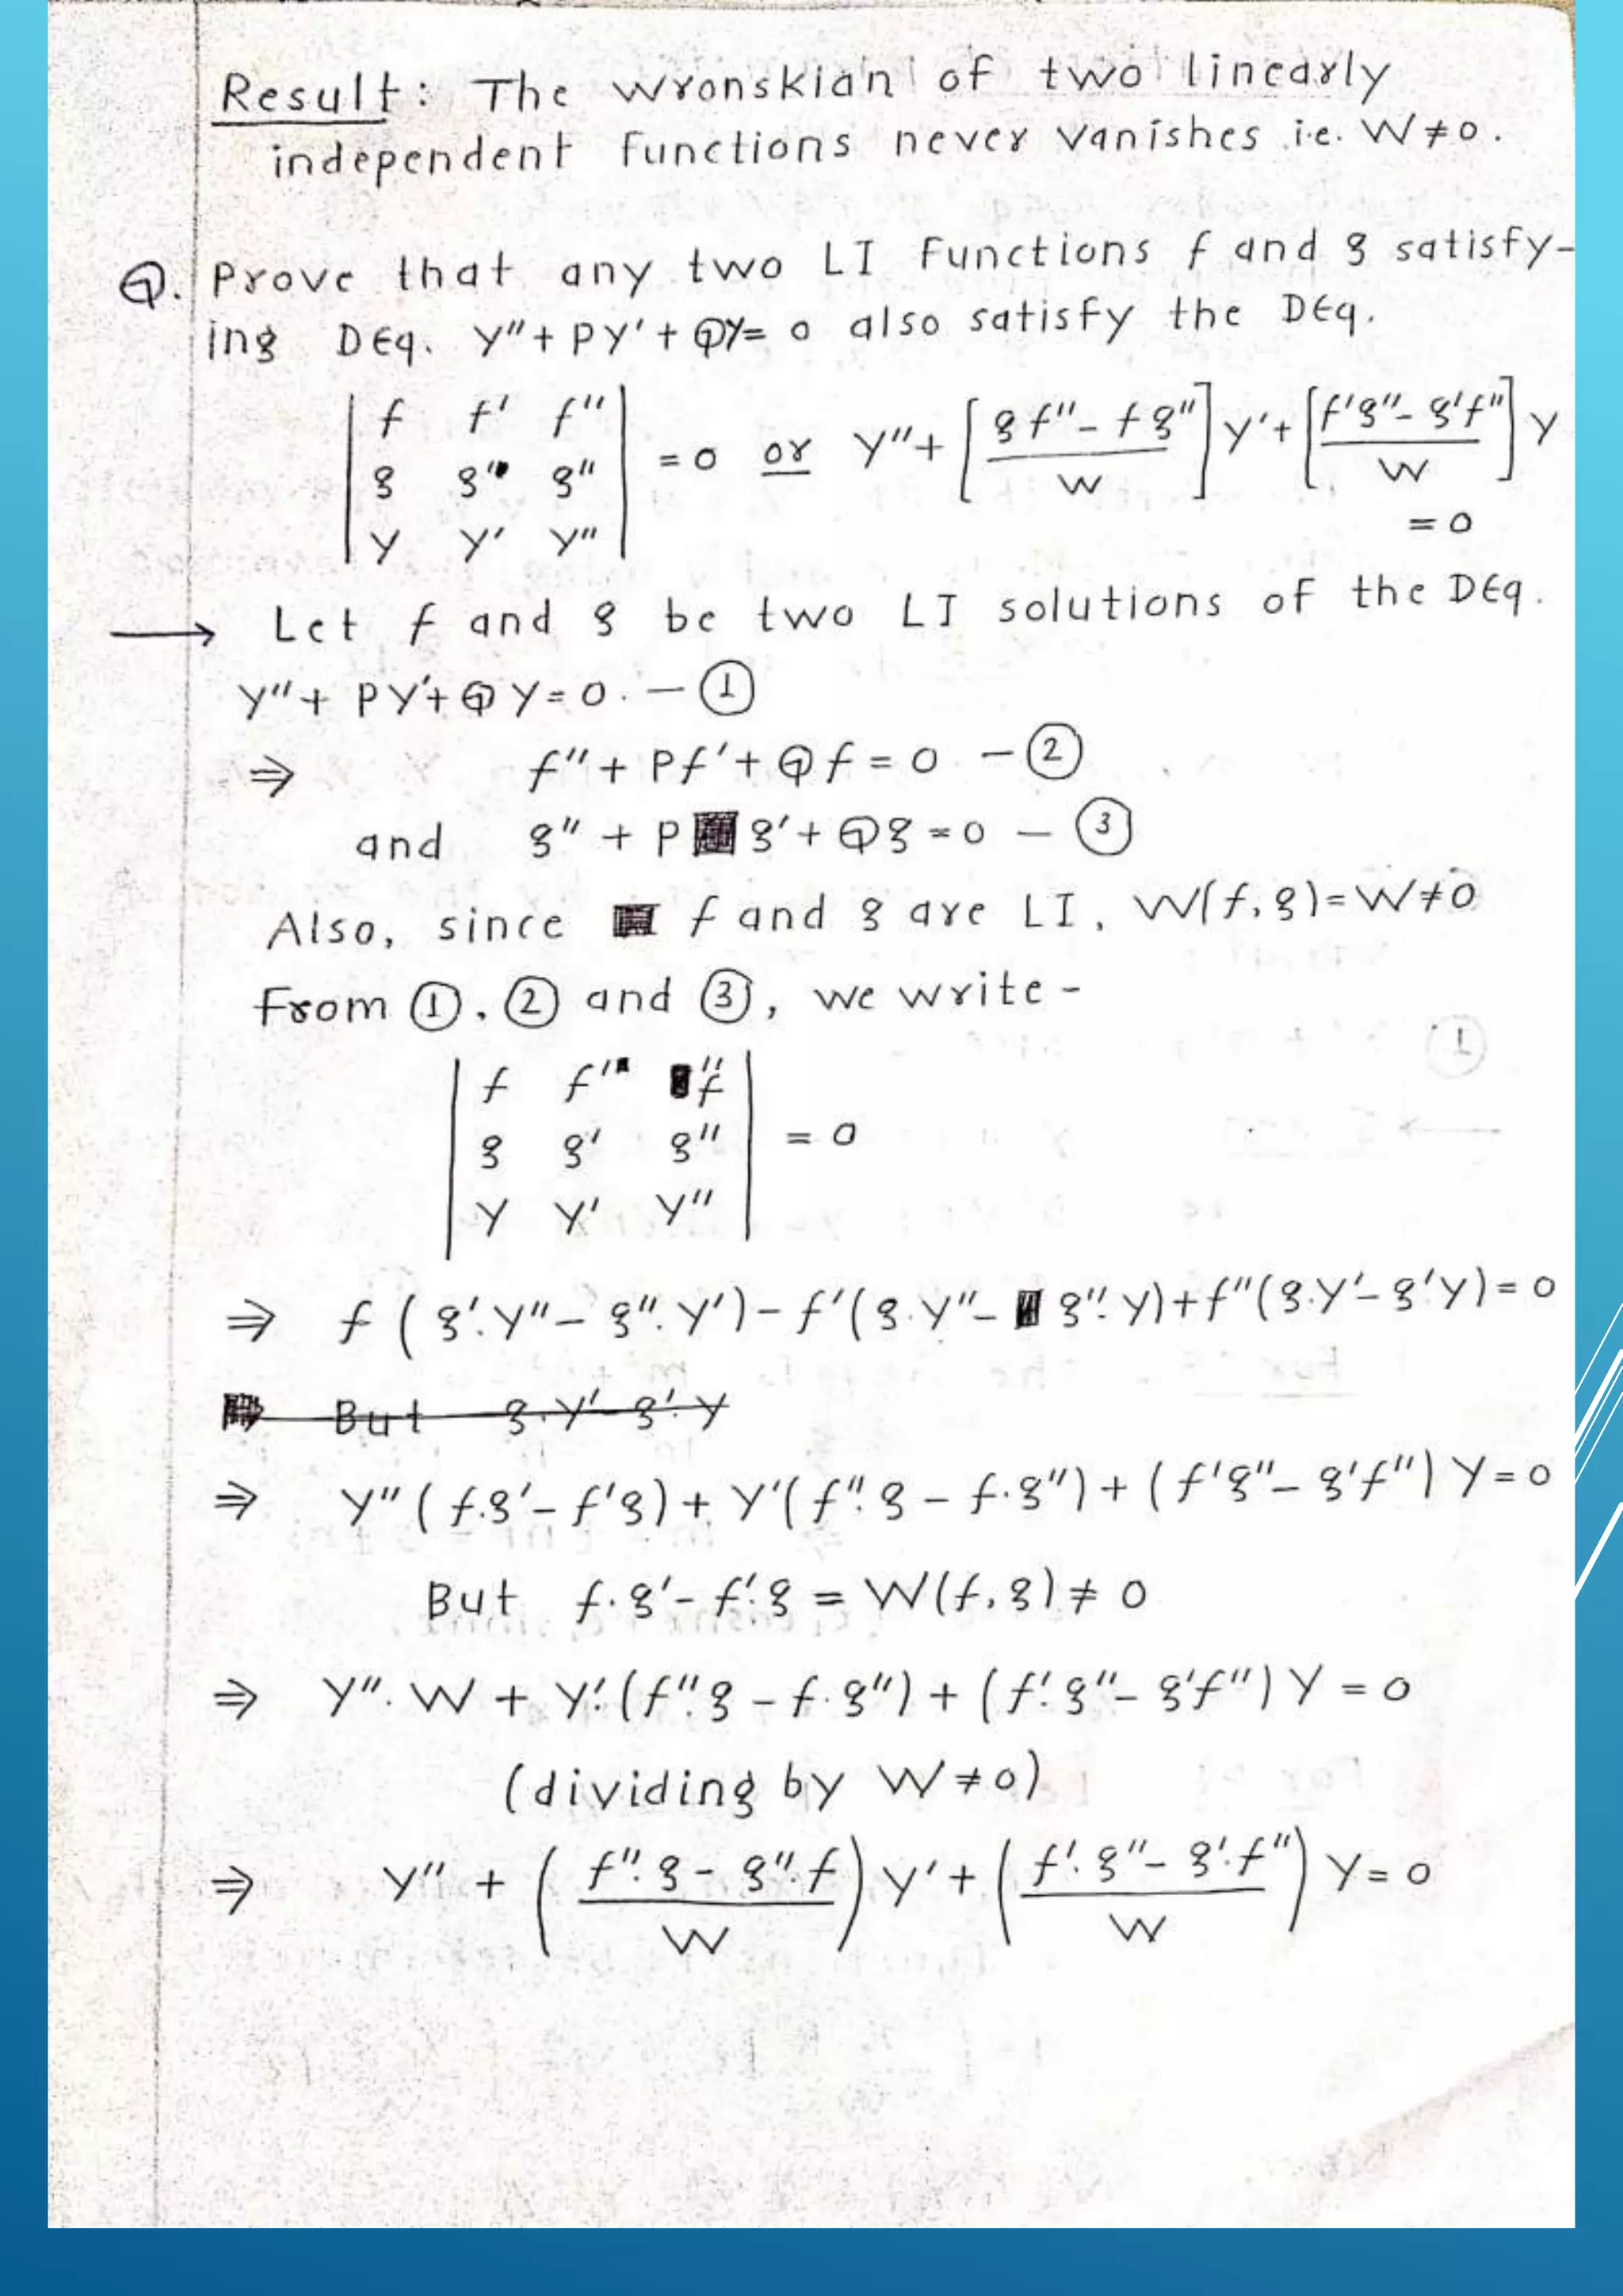 Result: The Wronskian of two linearly
independent functions never vanishes i.e. W≠0.
Q. Prove that any two LI functions f and g satisfy-
ing DEq. y"+Py'+Qy=0 also satisfy the DEq.
| f f' f" |
| g g' g" | = 0 or y"+[(gf"-fg")/W]y'+[(f'g"-g'f")/W]y
= 0
| y y' y" |
→ Let f and g be two LI solutions of the DEq.
y"+Py'+Qy=0. — ①
⇒ f"+Pf'+Qf=0 — ②
and g"+Pg'+Qg=0 — ③
Also, since f and g are LI, W(f,g)=W≠0
From ①, ② and ③, we write -
| f f' f" |
| g g' g" | = 0
| y y' y" |
⇒ f(g'.y"-g".y')-f'(g.y"-g".y)+f"(g.y'-g'y)=0
But g.y'-g'.y
⇒ y"(f.g'-f'g)+y'(f".g-f.g")+(f'g"-g'f")y=0
But f.g'-f'.g=W(f,g)≠0
⇒ y".W+y'.(f".g-f.g")+(f'.g"-g'f")y=0
(dividing by W≠0)
⇒ y"+((f".g-g".f)/W)y'+((f'.g"-g'.f")/W)y=0